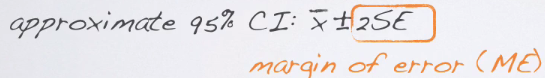 approximate 95% CI: x̄ ± 2SE
margin of error (ME)